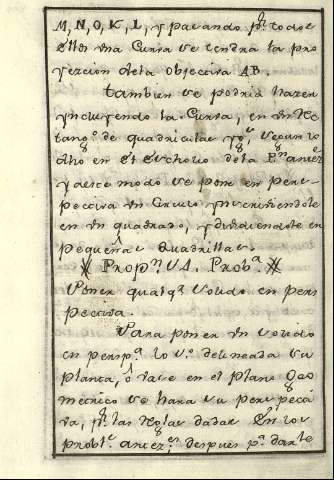 M, N, O, K, L, y pasando pr. todos
ellos una Curva se tendra la pro
yeccion dela objectiva AB.
Tambien se podria hazer
yncluyendo la Curva, en un Rec
tango. de quadriculas
dho en el Escholio dela antecte
y deste modo se pone en pers-
pectiva un Circulo ynscriviendole
en un quadrado, y dividiendole en
pequeñas quadrillas.
Propn. VI. Proba.
Poner qualqr. solido en pers
pectiva.
Para poner un solido
en perspa. lo 1o. delineada su
planta, ô vase en el plano Geo
metrico se hara su perspecti
va, pr. las Reglas dadas en los
probls. antezes. despues pa. darle